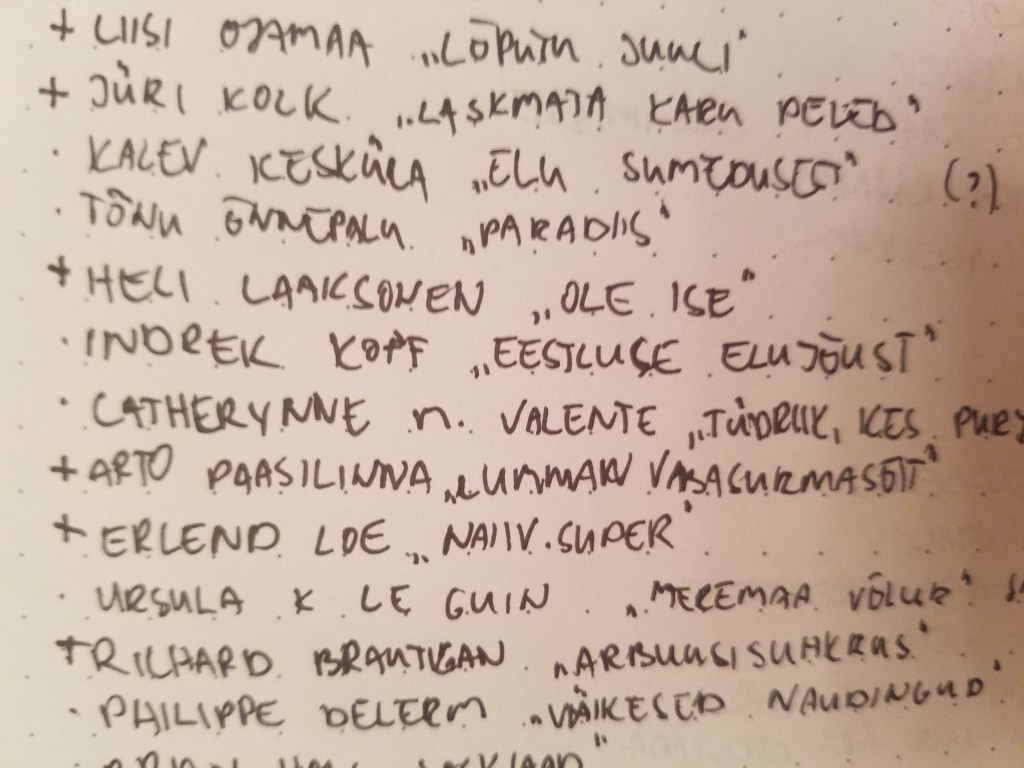 + LIISI OJAMAA „LÕPUTU JUULI"
+ JÜRI KOLK „LASKMATA KARU PELIED"
· KALEV KESKÜLA „ELU SUMEDUSEST" (?)
· TÕNU ÕNNEPALU „PARADIIS"
+ HELI LAAKSONEN „OLE ISE"
· INDREK KOFF „EESTLUSE ELUJÕUST"
· CATHERYNNE M. VALENTE „TÜDRUK, KES PURJ
+ ARTO PAASILINNA „LUMMAV VABASURMASÕIT"
+ ERLEND LOE „NAIIV.SUPER"
· URSULA K LE GUIN „MEREMAA VÕLUR"
+ RICHARD BRAUTIGAN „ARBUUSISUHKRUS"
· PHILIPPE DELERM „VÄIKESED NAUDINGUD"